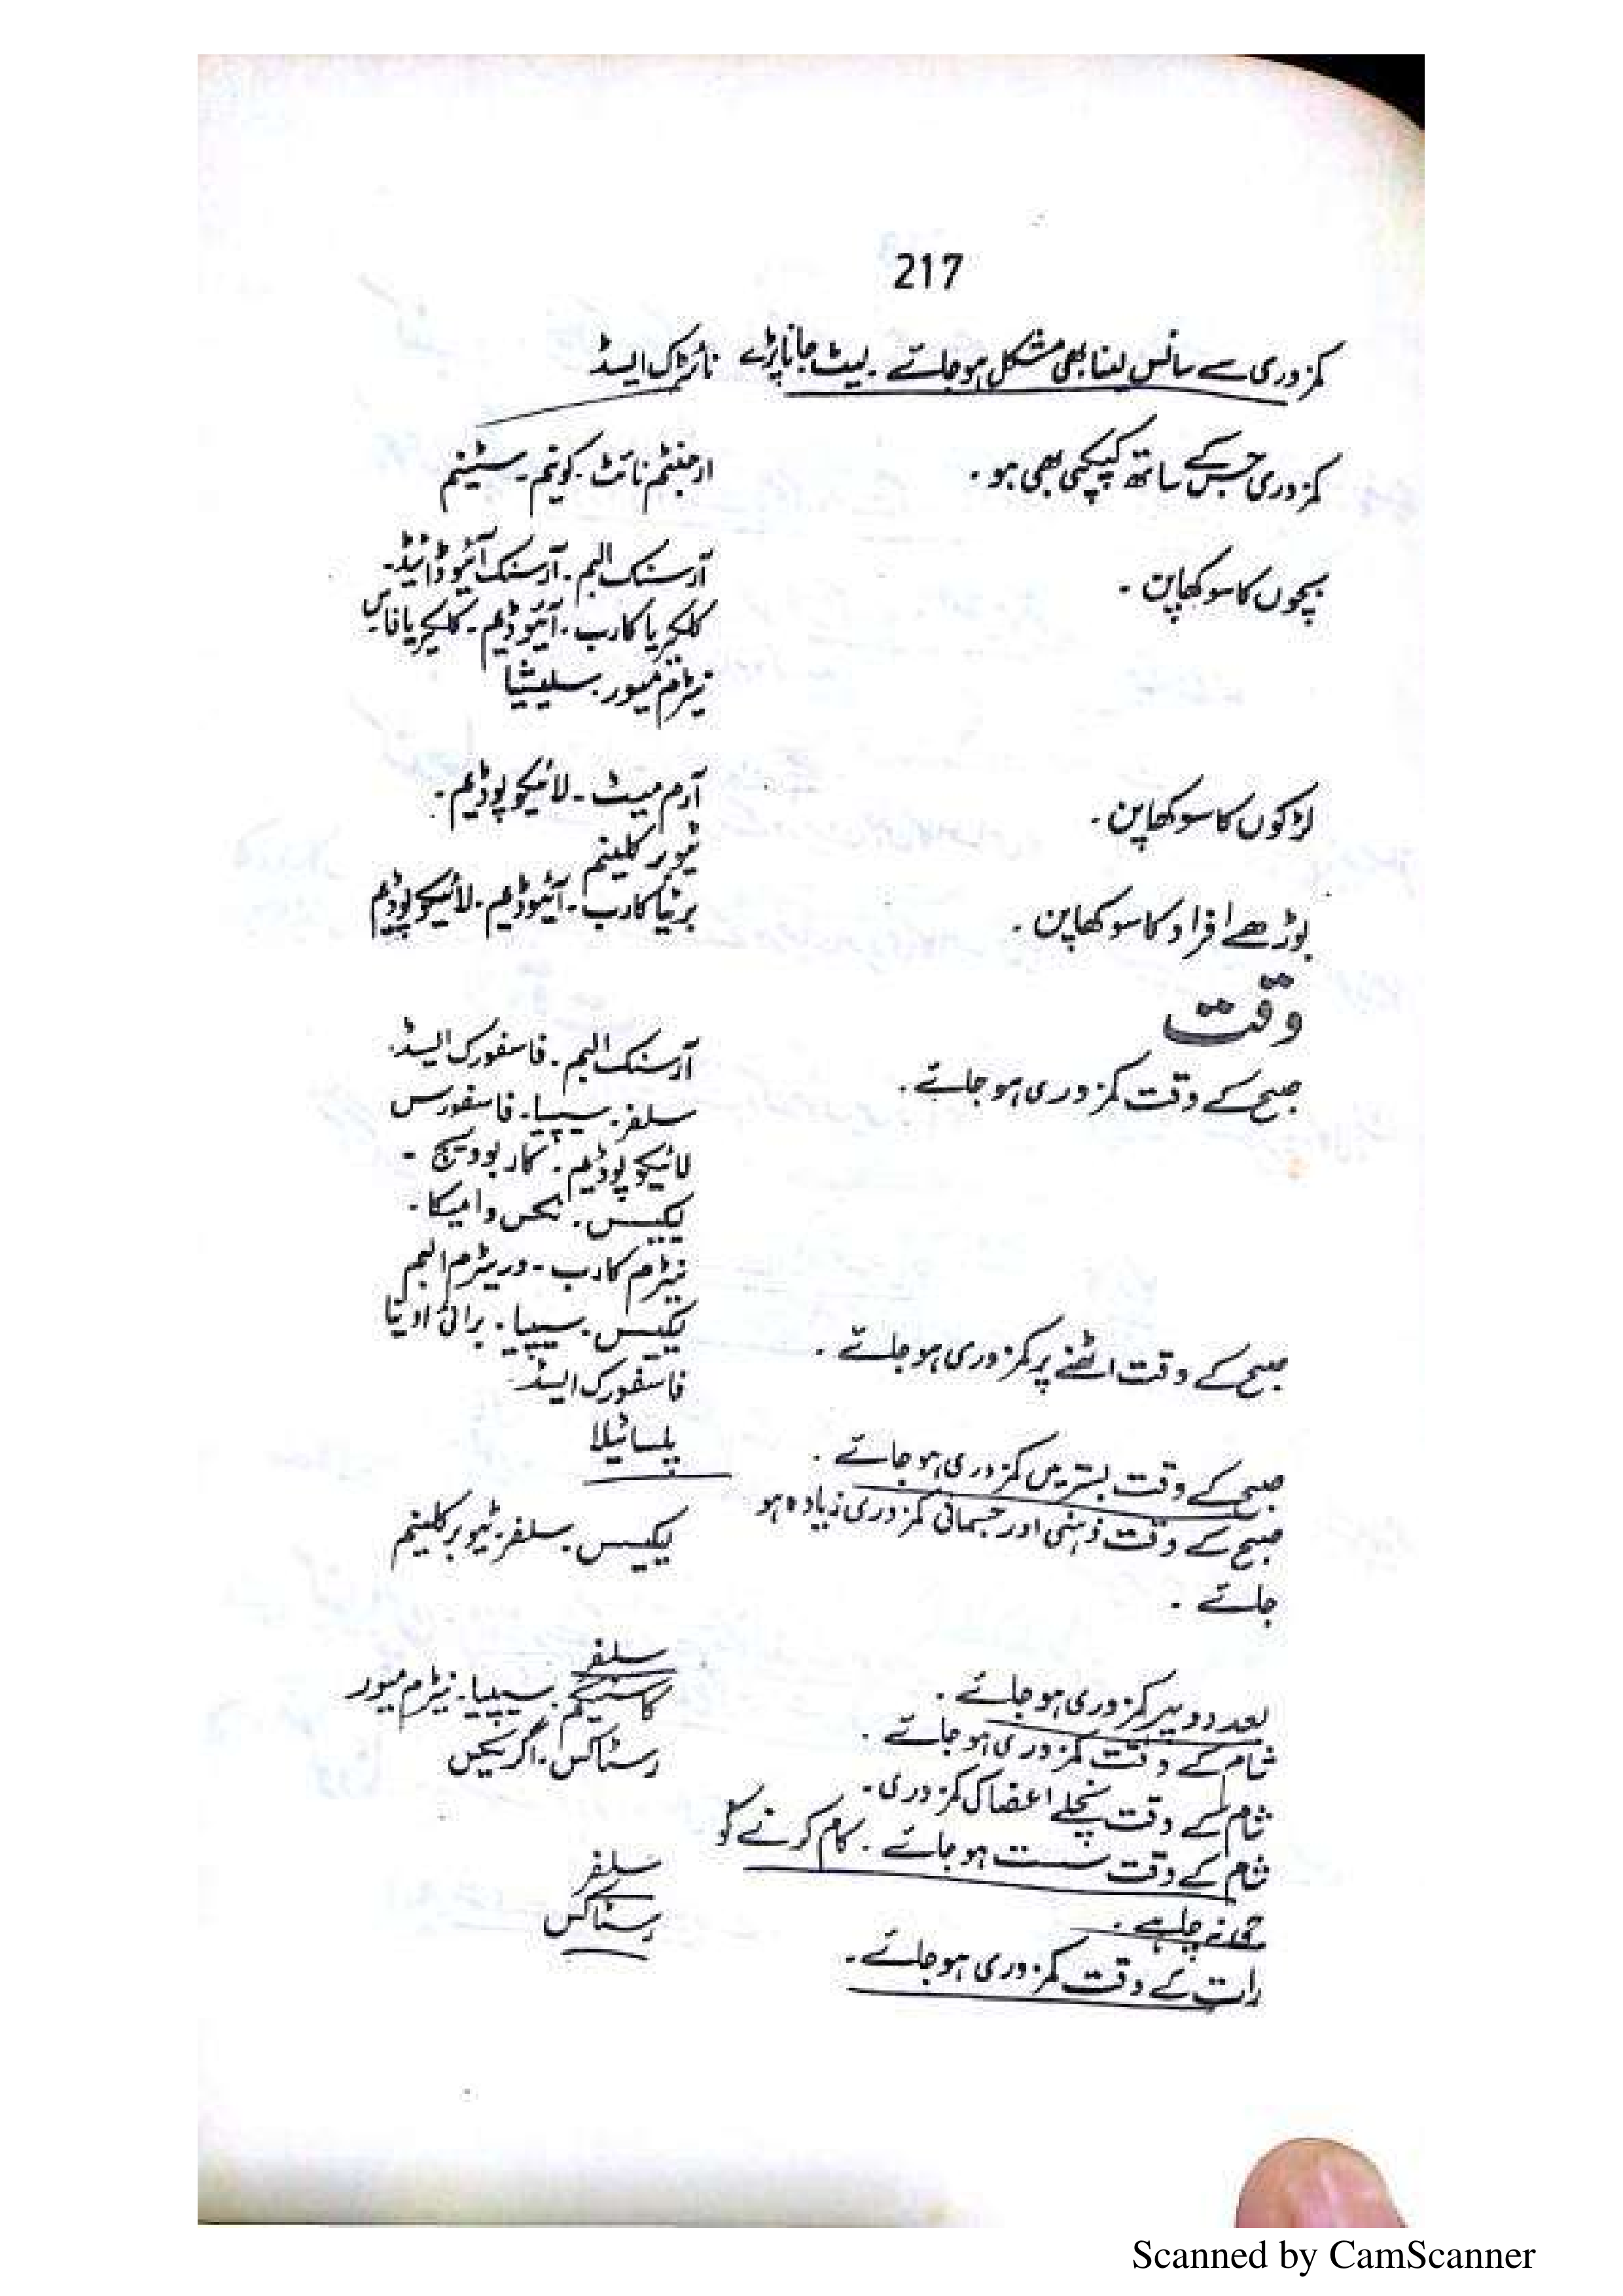 217
کمزوری سے سانس لینا بھی مشکل ہو جائے۔ لیٹ جانا پڑے نائٹرک ایسڈ
کمزوری جس کے ساتھ کپکپی بھی ہو۔ ارجنٹم نائٹ۔ کونیم۔ سٹینم
بچوں کا سوکھا پن۔ آرسنک البم۔ آرسنک آئیوڈائیڈ۔
کلکیریا کارب۔ آئیوڈیم۔ کلکیریا فاس
نیٹرم میور۔ سلیشیا
لڑکوں کا سوکھا پن۔ آرم میٹ۔ لائیکو پوڈیم۔
ٹیوبر کلینم
بوڑھے افراد کا سوکھا پن۔ برئیٹا کارب۔ آئیوڈیم۔ لائیکو پوڈیم
وقت
صبح کے وقت کمزوری ہو جائے۔ آرسنک البم۔ فاسفورک ایسڈ۔
سلفر۔ سیپیا۔ فاسفورس
لائیکو پوڈیم۔ کاربوویج۔
لیکیسس۔ نکس وامیکا۔
نیٹرم کارب۔ وریٹرم البم
صبح کے وقت اٹھنے پر کمزوری ہو جائے۔ لیکیسس۔ سیپیا۔ برائی اونیا
فاسفورک ایسڈ
صبح کے وقت بستر میں کمزوری ہو جائے۔ پلساٹیلا
صبح کے وقت ذہنی اور جسمانی کمزوری زیادہ ہو لیکیسس۔ سلفر۔ ٹیوبر کلینم
جائے۔
بعد دوپہر کمزوری ہو جائے۔ سلفر
شام کے وقت کمزوری ہو جائے۔ کاسٹیکم۔ سیپیا۔ نیٹرم میور
شام کے وقت نچلے اعضا کی کمزوری۔ رسٹاکس۔ اگریکس
شام کے وقت سست ہو جائے۔ کام کرنے کو سلفر
جی نہ چاہے۔
رات کے وقت کمزوری ہو جائے۔ رسٹاکس
Scanned by CamScanner